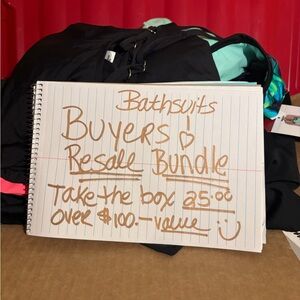 Bathsuits
Buyers ♡
Resale Bundle
Take the box 25.00
over $100.- value